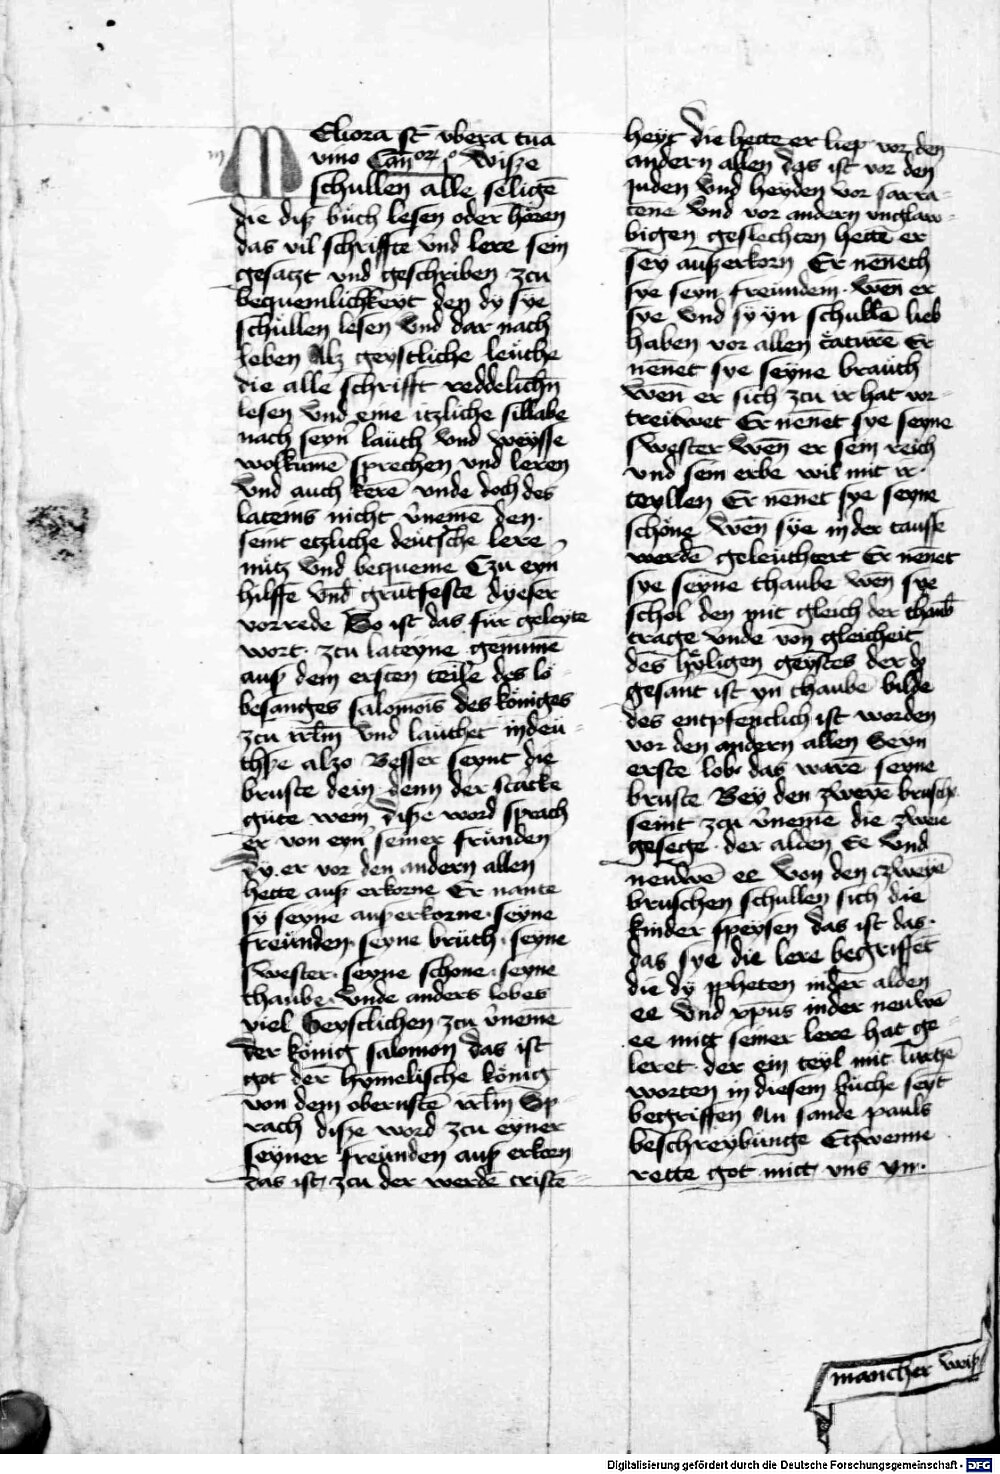 m
MEliora st vbera tua
vino Canor p̊ Wisze
schullen alle seligē
die disz bůch lesen oder hören
das vil schriffte vnd lere sein
gesatzt vnd geschriben zcu
bequemlichkeyt den dy sye
schüllen lesen vnd dar nach
leben Alz geystliche leüthe
die alle schrifft reddelichn̄
lesen vnd eine itzliche sillabe
nach seyn̄ laüth vnd weysse
wolkumē sprechen vnd leren
vnd auch kerē vnde doch des
lateins nicht v̄nemē den
seint etzliche deutsche lere
nütz vnd bequeme Czu eyn̄
hilffē vnd gruntfeste dyeser
vorrede So ist das für geleyte
wort zcu lateyne genūmē
ausz dem ersten teile des lo-
besanges salomois des königes
zcu irlm̄ vnd laüthet in deü-
thsze alzo Besser seynt die
bruste dein denn der starke
gute wein disze word sprach
er von eyn̄ seiner fründen
dy er vor den andern allen
hette ausz erkorne Er nante
sy seyne auszerkorne seyne
freünden seyne brüth seyne
swester seyne schone seyne
thaube vnde anders lobes
viel Geystlichen zcu v̄nemē
Der könig salomon das ist
got der hymelische könig
von dem obernstē irlm̄ Sp-
rach disze word zcu eyner
seyner freünden ausz erkorn
das ist zcu der werdē cristē-
heyt die hette er liep vor den
andern allen das ist vor den
juden vnd heyden vor sarra-
cene vnd vor andern vnglaw-
bigen geslechten hette er
sey auszerkorn Er nēneth
sye seyn freündem wēn er
sye vnd sy yn schullē lieb
haben vor allen c̄aturē Er
nēnet sye seyne braüth
wēn er sich zcu ir hat vor-
treuwet Er nēnet sye seyne
swester wēn er sein reich
vnd sein erbe wil mit ir
teyllen Er nēnet sye seyne
schöne wēn sye in der tauffe
werdē geleüchtert Er nēnet
sye seyne thaube wēn sye
schol den mut gleich der thaub̄
trage vnde von gleicheit
des hyligen geystes der do
gesant ist yn thaubē bilde
des entpfenclich ist worden
vor den andern allen Seyn
erste lob das warē seyne
bruste Bey den zweyē brusch
seint zcu v̄neme die zweie
gesecze der alden Ee vnd
neuwē ee Von den czweyē
bruschen schullen sich die
kinder speysen das ist das
das sye die lere begriffet
die dy ppheten in der alden
ee vnd xpūs in der neuwē
ee mitt seiner lere hat ge-
leret der ein teyl mit kurtzē
worten in diesem büche seyt
begriffen An sande pauls
beschreybünge Etzwenne
rette got mitt vns yn
mancher wisz
Digitalisierung gefördert durch die Deutsche Forschungsgemeinschaft - DFG